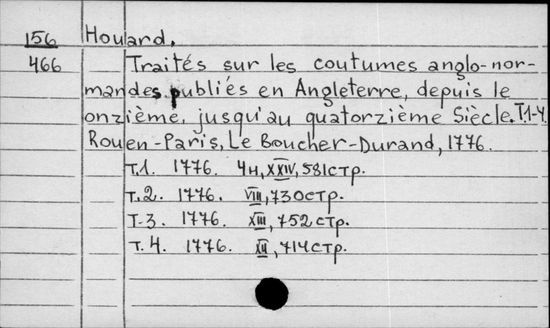 156 Houard.
466 Traités sur les coutumes anglo-nor-
mandes publiés en Angleterre, depuis le
onzième, jusqu'au quatorzième Siècle. T.1-4
Rouen-Paris, Le Boucher-Durand, 1776.
T.1. 1776. 4н, XXIV, 581стр.
т.2. 1776. VIII, 730стр.
T-3. 1776. XIII, 752стр.
т. 4. 1776. XII, 714стр.